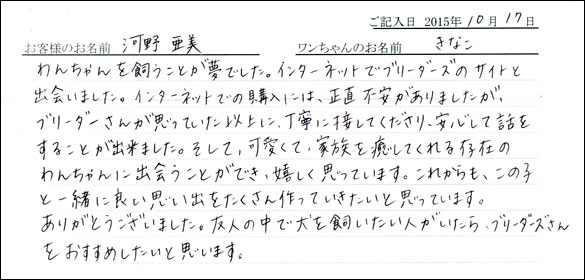 ご記入日 2015年 10月 17日
お客様のお名前 河野 亜美 ワンちゃんのお名前 きなこ
わんちゃんを飼うことが夢でした。インターネットでブリーダーズのサイトと
出会いました。インターネットでの購入には、正直不安がありましたが、
ブリーダーさんが思っていた以上に、丁寧に接してくださり、安心して話を
することが出来ました。そして、可愛くて、家族を癒してくれる存在の
わんちゃんに出会うことができ、嬉しく思っています。これからも、この子
と一緒に良い思い出をたくさん作っていきたいと思っています。
ありがとうございました。友人の中で犬を飼いたい人がいたら、ブリーダーズさん
をおすすめしたいと思います。